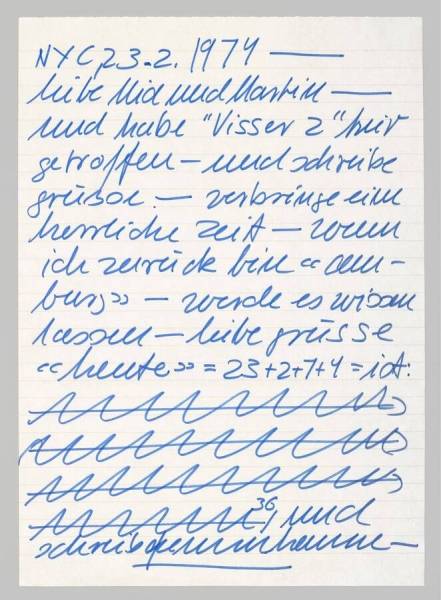 NYC, 23.2.1974 —
liebe Mia und Martin —
und habe "Visser 2" hier
getroffen — und schreibe
grüsse! — verbringe eine
herrliche zeit — wenn
ich zurück bin «am-
burg» — werde es wissen
lassen — liebe grüsse
«heute» = 23+2+7+4 = ist:
36, und
hanne —